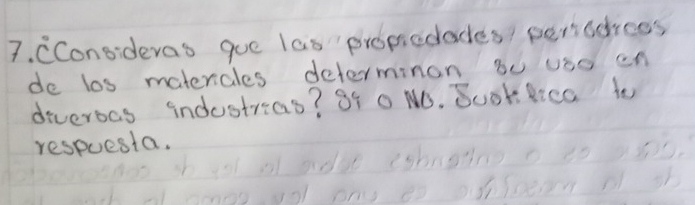 7. ¿Consideras que las propiedades periódicas
de los materiales determinan su uso en
diversas industrias? Si o NO. Justifica tu
respuesta.